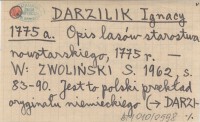 DARZILIK Ignacy
1775 a. Opis lasów starostwa
nowotarskiego, 1775 r. —
W: ZWOLIŃSKI S. 1962, s.
83-90. Jest to polski przekład
oryginału niemieckiego (→ DARZI-